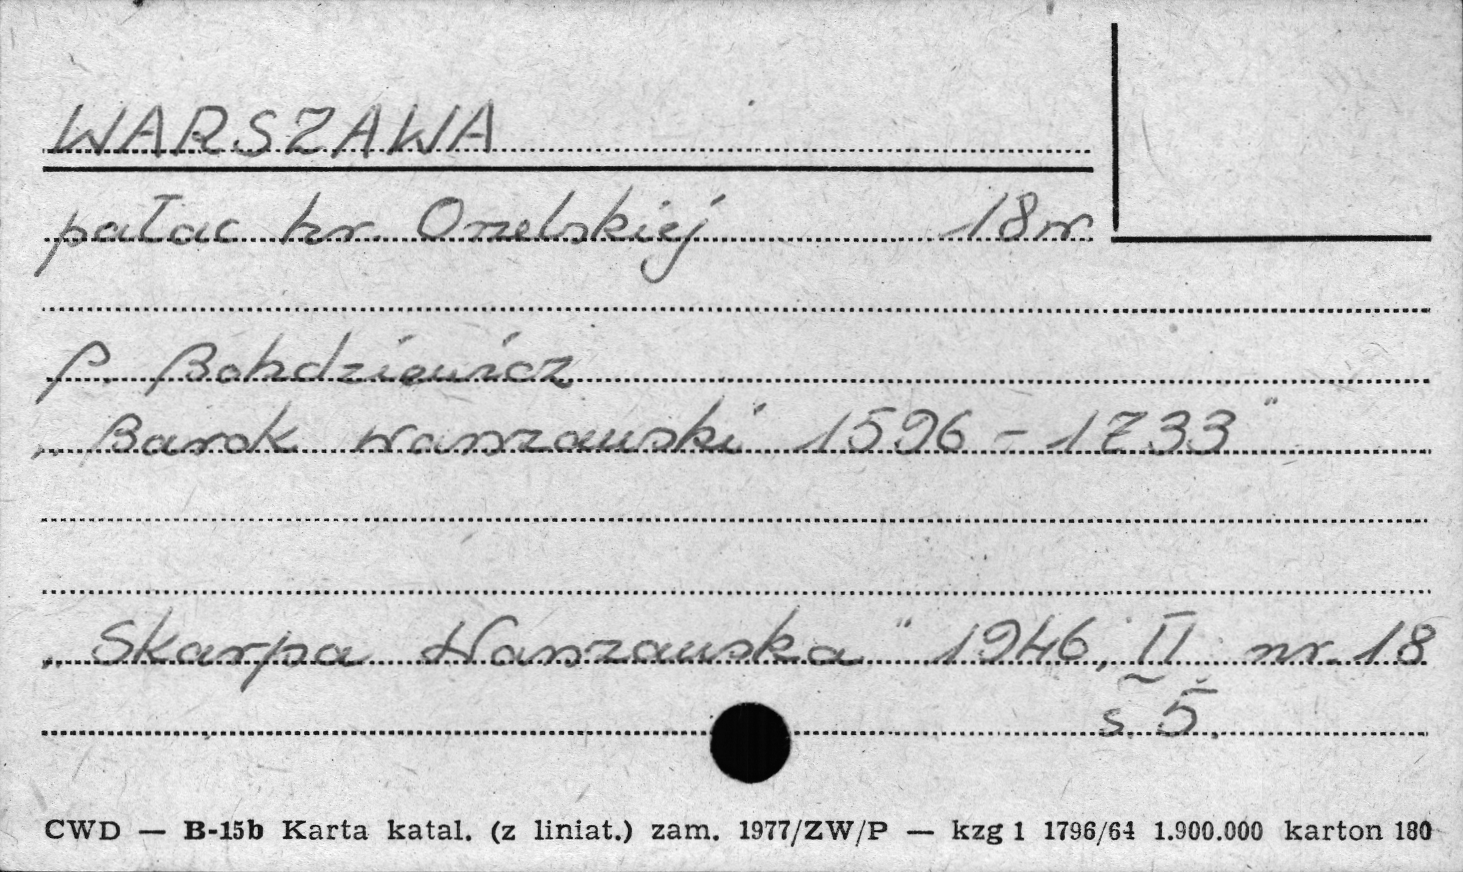 WARSZAWA
pałac hr. Orzelskiej 18w
P. Bohdziewicz
„Barok warszawski 1596 - 1733"
„Skarpa Warszawska" 1946, II nr. 18
s. 5.
CWD — B-15b Karta katal. (z liniat.) zam. 1977/ZW/P — kzg 1 1796/64 1.900.000 karton 180